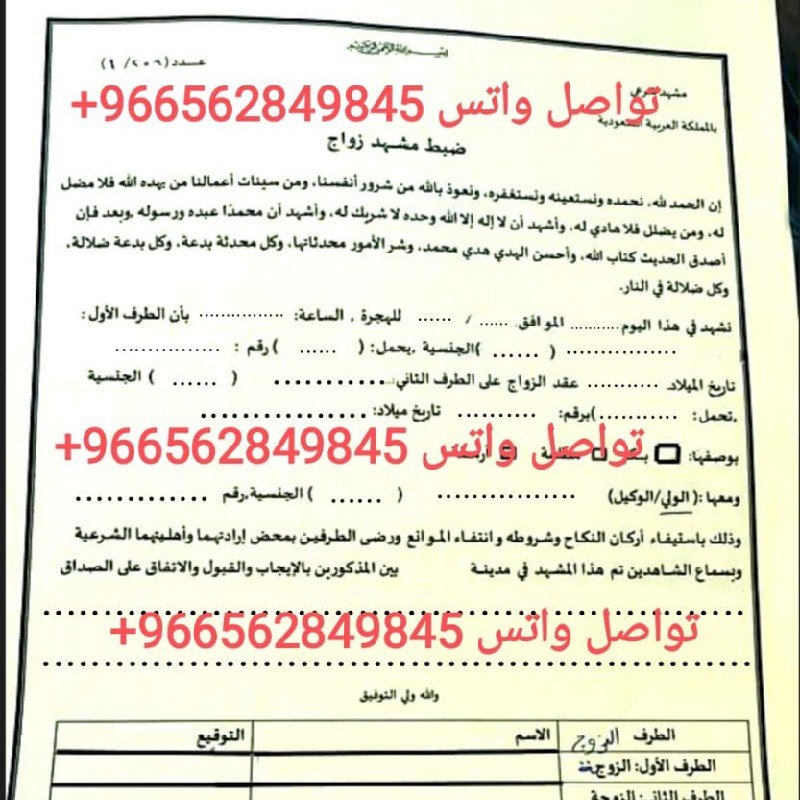 بسم الله الرحمن الرحيم
عدد (٢٠٦/ ٩)
مشهد شرعي
تواصل واتس 966562849845+
بالمملكة العربية السعودية
ضبط مشهد زواج
إن الحمد لله، نحمده ونستعينه ونستغفره، ونعوذ بالله من شرور أنفسنا، ومن سيئات أعمالنا من يهده الله فلا مضل
له، ومن يضلل فلا هادي له، وأشهد أن لا إله إلا الله وحده لا شريك له، وأشهد أن محمدًا عبده ورسوله .وبعد فإن
أصدق الحديث كتاب الله، وأحسن الهدي هدي محمد، وشر الأمور محدثاتها، وكل محدثة بدعة، وكل بدعة ضلالة،
وكل ضلالة في النار.
نشهد في هذا اليوم........... الموافق. ...... / ...... للهجرة , الساعة: ................ بأن الطرف الأول:
.................... ( ...... )الجنسية .يحمل: ( ...... ) رقم : ..................
تاريخ الميلاد. ............ عقد الزواج على الطرف الثاني:................. ( ...... ) الجنسية
.تحمل: ............)برقم: ............ تاريخ ميلاد: ....................
بوصفها:
تواصل واتس 966562849845+
ومعها :( الولي/الوكيل) .................... ( ...... ) الجنسية.رقم ..................
وذلك باستيفاء أركان النكاح وشروطه وانتفاء الموانع ورضى الطرفين بمحض إرادتهما وأهليتهما الشرعية
وبسماع الشاهدين تم هذا المشهد في مدينة بين المذكورين بالإيجاب والقبول والاتفاق على الصداق
تواصل واتس 966562849845+
والله ولي التوفيق
الطرف الزوج الاسم التوقيع
الطرف الأول: الزوج
الطرف الثاني: الزوجة